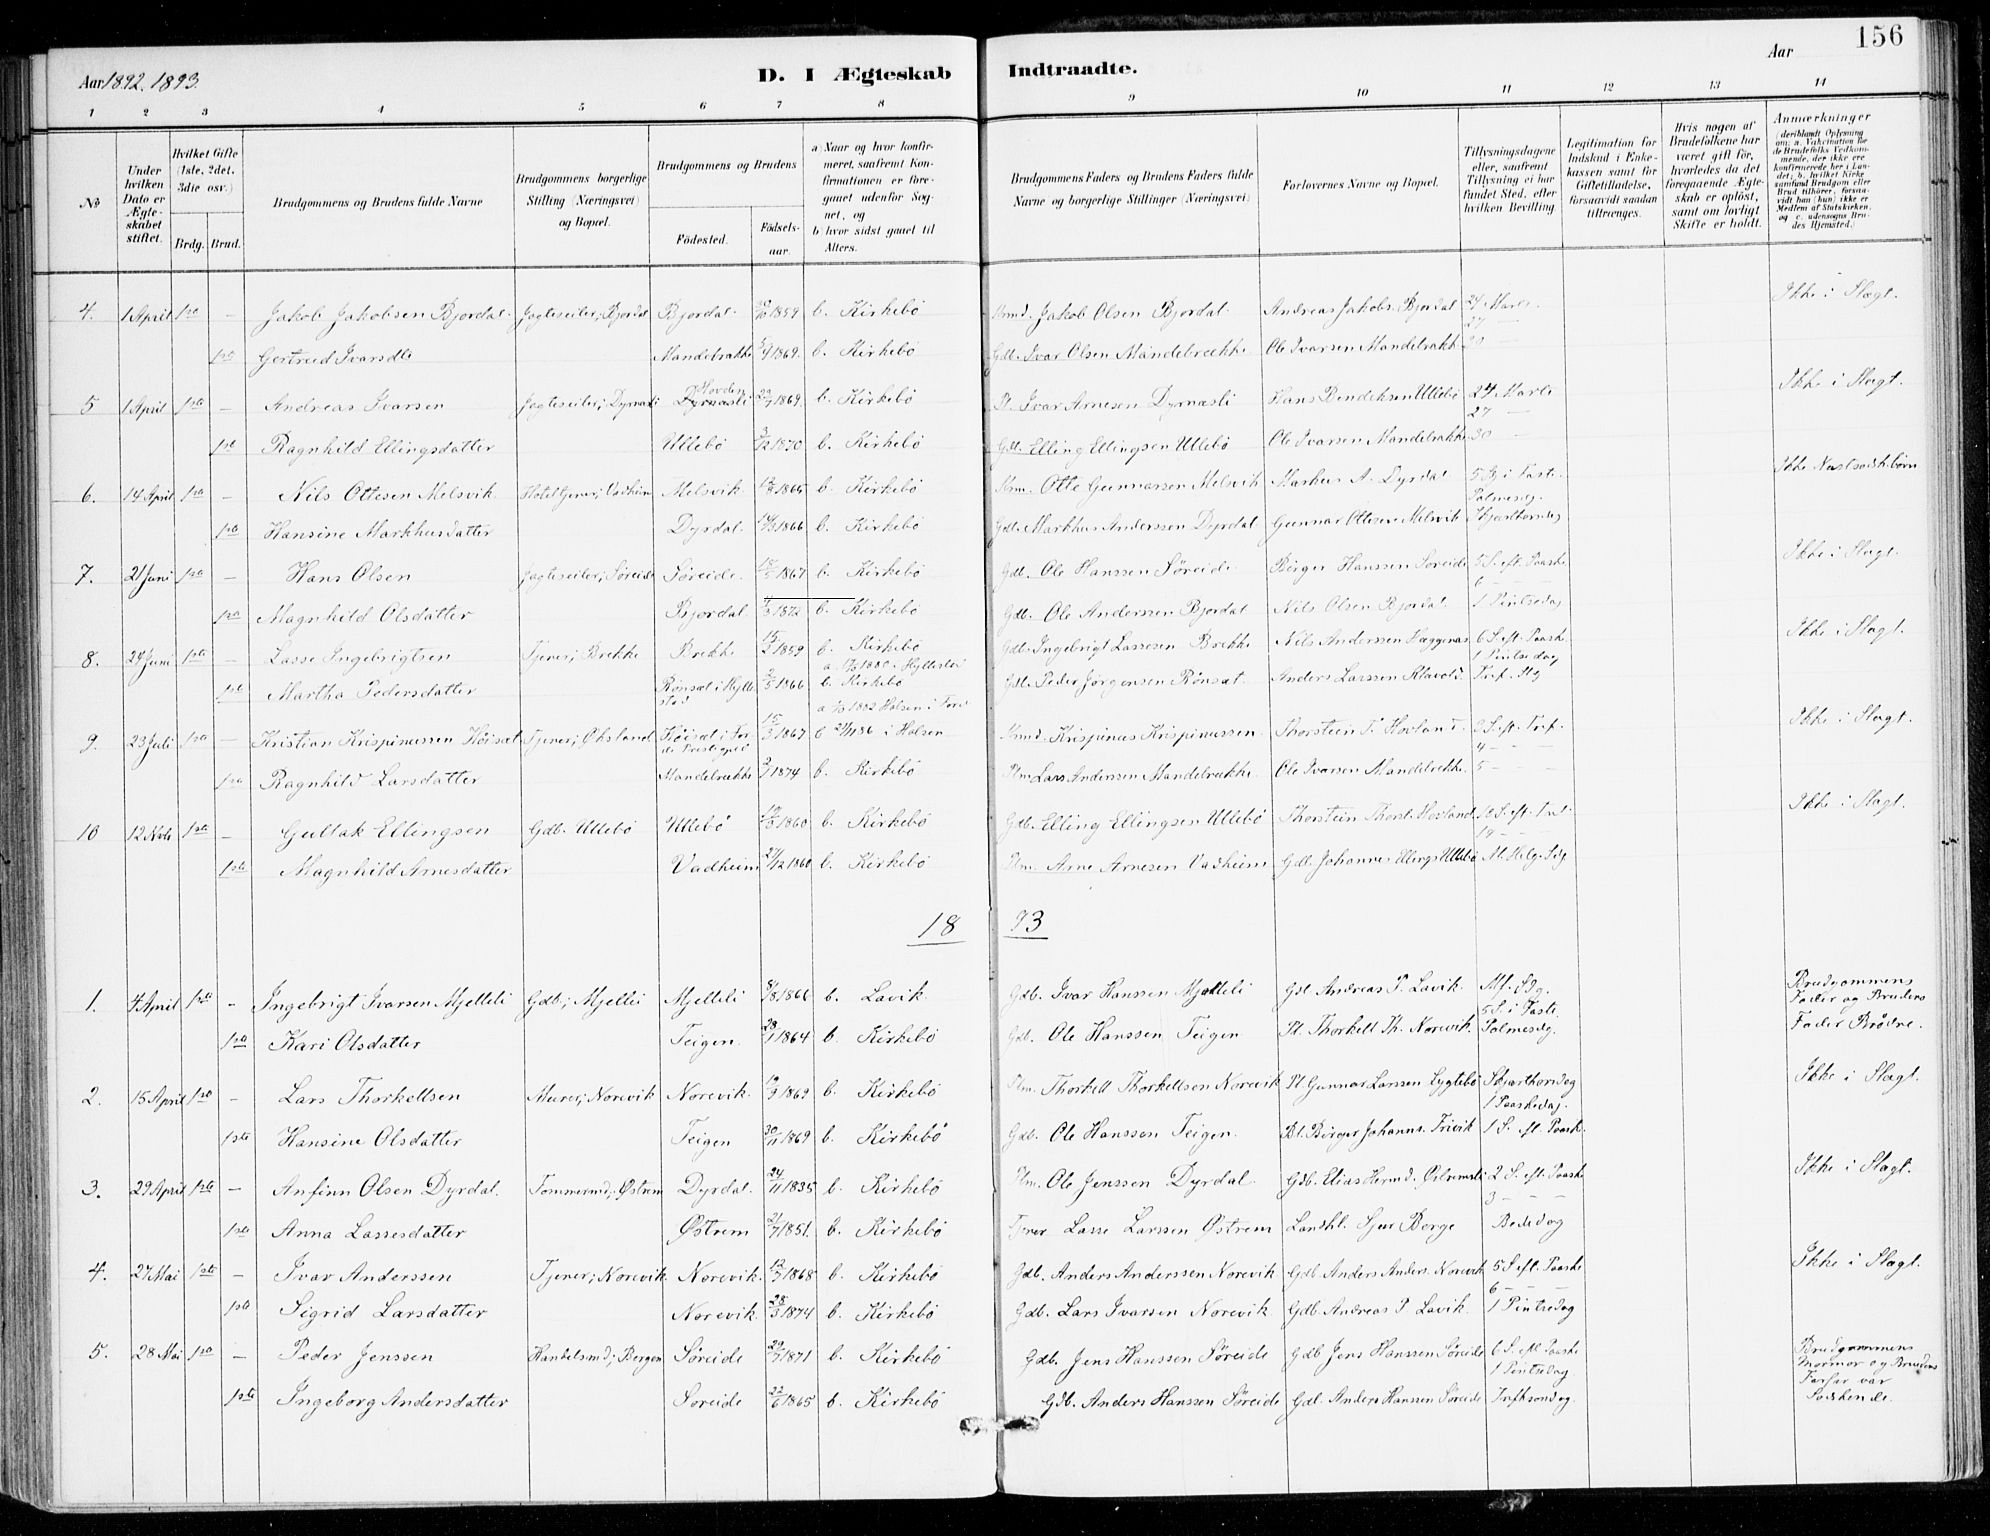 156
Aar 1892. 1893.
D. I Ægteskab Indtraadte.
Aar
1 2 3 4 5 6 7 8 9 10 11 12 13 14
No
Under hvilken Dato er Ægteskabet stiftet.
Hvilket Gifte (1ste, 2det, 3die osv.)
Brdg. Brud.
Brudgommens og Brudens fulde Navne
Brudgommens borgerlige Stilling (Næringsvei) og Bopæl.
Brudgommens og Brudens
Fødested. Fødselsaar.
a) Naar og hvor konfirmeret, saafremt Konfirmationen er foregaaet udenfor Sognet, og
b) hvor sidst gaaet til Alters.
Brudgommens Faders og Brudens Faders fulde Navne og borgerlige Stillinger (Næringsvei)
Forlovernes Navne og Bopæl.
Tillysningsdagene eller, saafremt Tillysning ei har fundet Sted, efter hvilken Bevilling.
Legitimation for Indskud i Enkekassen samt for Giftetilladelse, forsaavidt saadan tiltrænges.
Hvis nogen af Brudefolkene har været gift før, hvorledes da det foregaaende Ægteskab er opløst, samt om lovligt Skifte er holdt.
Anmærkninger (deriblandt Oplysning om: a. Vakcination for de Brudefolks Vedkommende, der ikke ere konfirmerede her i Landet; b. hvilket Kirkesamfund Brudgom eller Brud tilhører, forsaavidt han (hun) ikke er Medlem af Statskirken, og c. udensogns Brudes Hjemsted.)
4. 1 April 1ste – Jakob Jakobsen Bjordal. Jægteseiler; Bjordal Bjordal 1859 b. Kirkebö Jakob Olsen Bjordal. Andreas Jakobs. Bjordal 24 Marts 27 –
1ste Gertrud Ivarsdtr Mandebrække 1869. b. Kirkebö Gdb. Ivar Olsen Mandebrække Ole Ivarsen Mandebrækk. 30 –
Ikke i Slægt.
5 1 April 1ste – Andreas Ivarsen Jægteseiler; Dyrnæsli Hovden Dyrnæsli 1869. b. Kirkebö Pl. Ivar Arnesen Dyrnæsli Hans Bendiksen Ullebö 24 Marts 27 –
1ste Ragnhild Ellingsdatter Ullebö 3/12 1870 b. Kirkebö Gdb. Elling Ellingsen Ullebö Ole Ivarsen Mandebrække 30 –
Ikke i Slægt.
6. 14 April 1ste – Nils Ottesen Melsvik Melsvik. 1865 b. Kirkebö Otte Gunnarsen Melsvik Markus A. Dyrdal 5 Sg i Faste
Palmesdg.
1ste Hansine Markhusdatter Dyrdal 1866 b. Kirkebö Gdb. Markhus Anderssen Dyrdal Gunnar Ottesen Melsvik Skjærthorsdag
7. 21 Juni 1ste – Hans Olsen Jægteseiler; Søreide Søreide. 1867 b. Kirkebö Gdb. Ole Hanssen Søreide Birger Hanssen Søreide 5 S. eft. Paaske
6 –
1ste Magnhild Olsdatter Bjordal 1872 b. Kirkebö Gdb. Ole Anderssen Bjordal Nils Olsen Bjordal 1 Pintsedag
Ikke i Slægt.
8. 24 Juni 1ste – Lasse Ingebrigtsen Tjener; Brekke Brekke 1859 b. Kirkebö Gdb. Ingebrigt Lassesen Brekke Nils Anderssen 6 S. eft. Paaske.
1 Pintsedag
1ste Martha Pedersdatter Rönset i Hyllestad 1866 b. Kirkebö Gdb. Peder Jørgensen Rönset. Anders Larssen Klævold Tref. Sdg
Ikke i Slægt.
9. 23 Juli 1ste – Kristian Krispinussen Höisæt Tjener; Øksland 15/3 1867 i Holsen Krispinus Krispinussen Thorstein T. Hovland. 3 S. eft. Tref.
4 –
1ste Ragnhild Larsdatter Mandebrække 1874 b. Kirkebö Lars Anderssen Mandebrække Ole Ivarsen Mandebrække. 5 –
Ikke i Slægt.
10 12 Nvb 1ste – Gullak Ellingsen Gdb. Ullebö Ullebö 1860 b. Kirkebö Gdb. Elling Ellingsen Ullebö Thorstein Thorst. Hovland
1ste Magnhild Arnesdatter Vadheim 1860 b. Kirkebö Plm. Arne Arnesen Vadheim Gdb. Johannes Ellings Ullebö Al. Helg. Sdg
Ikke i Slægt.
18 93
1. 4 April 1ste – Ingebrigt Ivarsen Mjelleli Gdb.; Mjelleli Mjelleli 8/8 1866 b. Lavik. Gdb. Ivar Hanssen Mjelleli Gdb Andreas P. Lavik. Mf. Sdg.
5 S. i Faste.
1ste Kari Olsdatter Teigen. 1864 b. Kirkebö Gdb. Ole Hanssen Teigen Pl. Thorkell Th. Norevik. Palmesdg.
Brudgommens Fader og Brudens Fader Brødre.
2. 15 April 1ste – Lars Thorkellsen Murer; Norevik Norevik. 19/9 1869 b. Kirkebö Plm. Thorkell Thorkellsen Norevik Pl. Gunnar Larssen Lygtebö Skjærthorsdag
1 Paaskedag.
1ste Hansine Olsdatter Teigen 30/11 1869 b. Kirkebö Gdb. Ole Hanssen Teigen. Birger Johanns. Trivik 1 S. eft. Paask.
Ikke i Slægt.
3. 29 April 1ste – Anfinn Olsen Dyrdal. Tommermd; Østrem Dyrdal. 24/11 1835 b. Kirkebö Plm. Ole Jenssen Dyrdal. Gdb. Elias Hermd. Østremsli 2 S. eft. Paaske
3 – – –
1ste Anna Lassesdatter Østrem 21/7 1851. b. Kirkebö Tjener Lasse Larssen Østrem Landhl. Sjur Berge Bededag
Ikke i Slægt.
4. 27 Mai 1ste – Ivar Anderssen Tjener; Norevik. Norevik. 1868 b. Kirkebö Gdb. Anders Anderssen Norevik Gdb. Anders Anders. Norevik 5 S. eft. Paaske
6 – – –
1ste Sigrid Larsdatter Norevik. 28/3 1874 b. Kirkebö Gdb. Lars Ivarsen Norevik Gdb. Andreas P. Lavik. 1 Pintsedag
Ikke i Slægt.
5. 28 Mai 1ste – Peder Jenssen Handelsmd; Bergen Søreide 1871 b. Kirkebö Gdb. Jens Hanssen Søreide Gdb Jens Hanssen Søreide 6 S. eft. Paaske
1 Pintsedag.
1ste Ingeborg Andersdatter Søreide 22/6 1865 b. Kirkebö Gdb. Anders Hanssen Søreide Gdb. Anders Hanssen Søreide Trefsondag.
Brudgommens Mormor og Brudens Farfar var Sødskende.